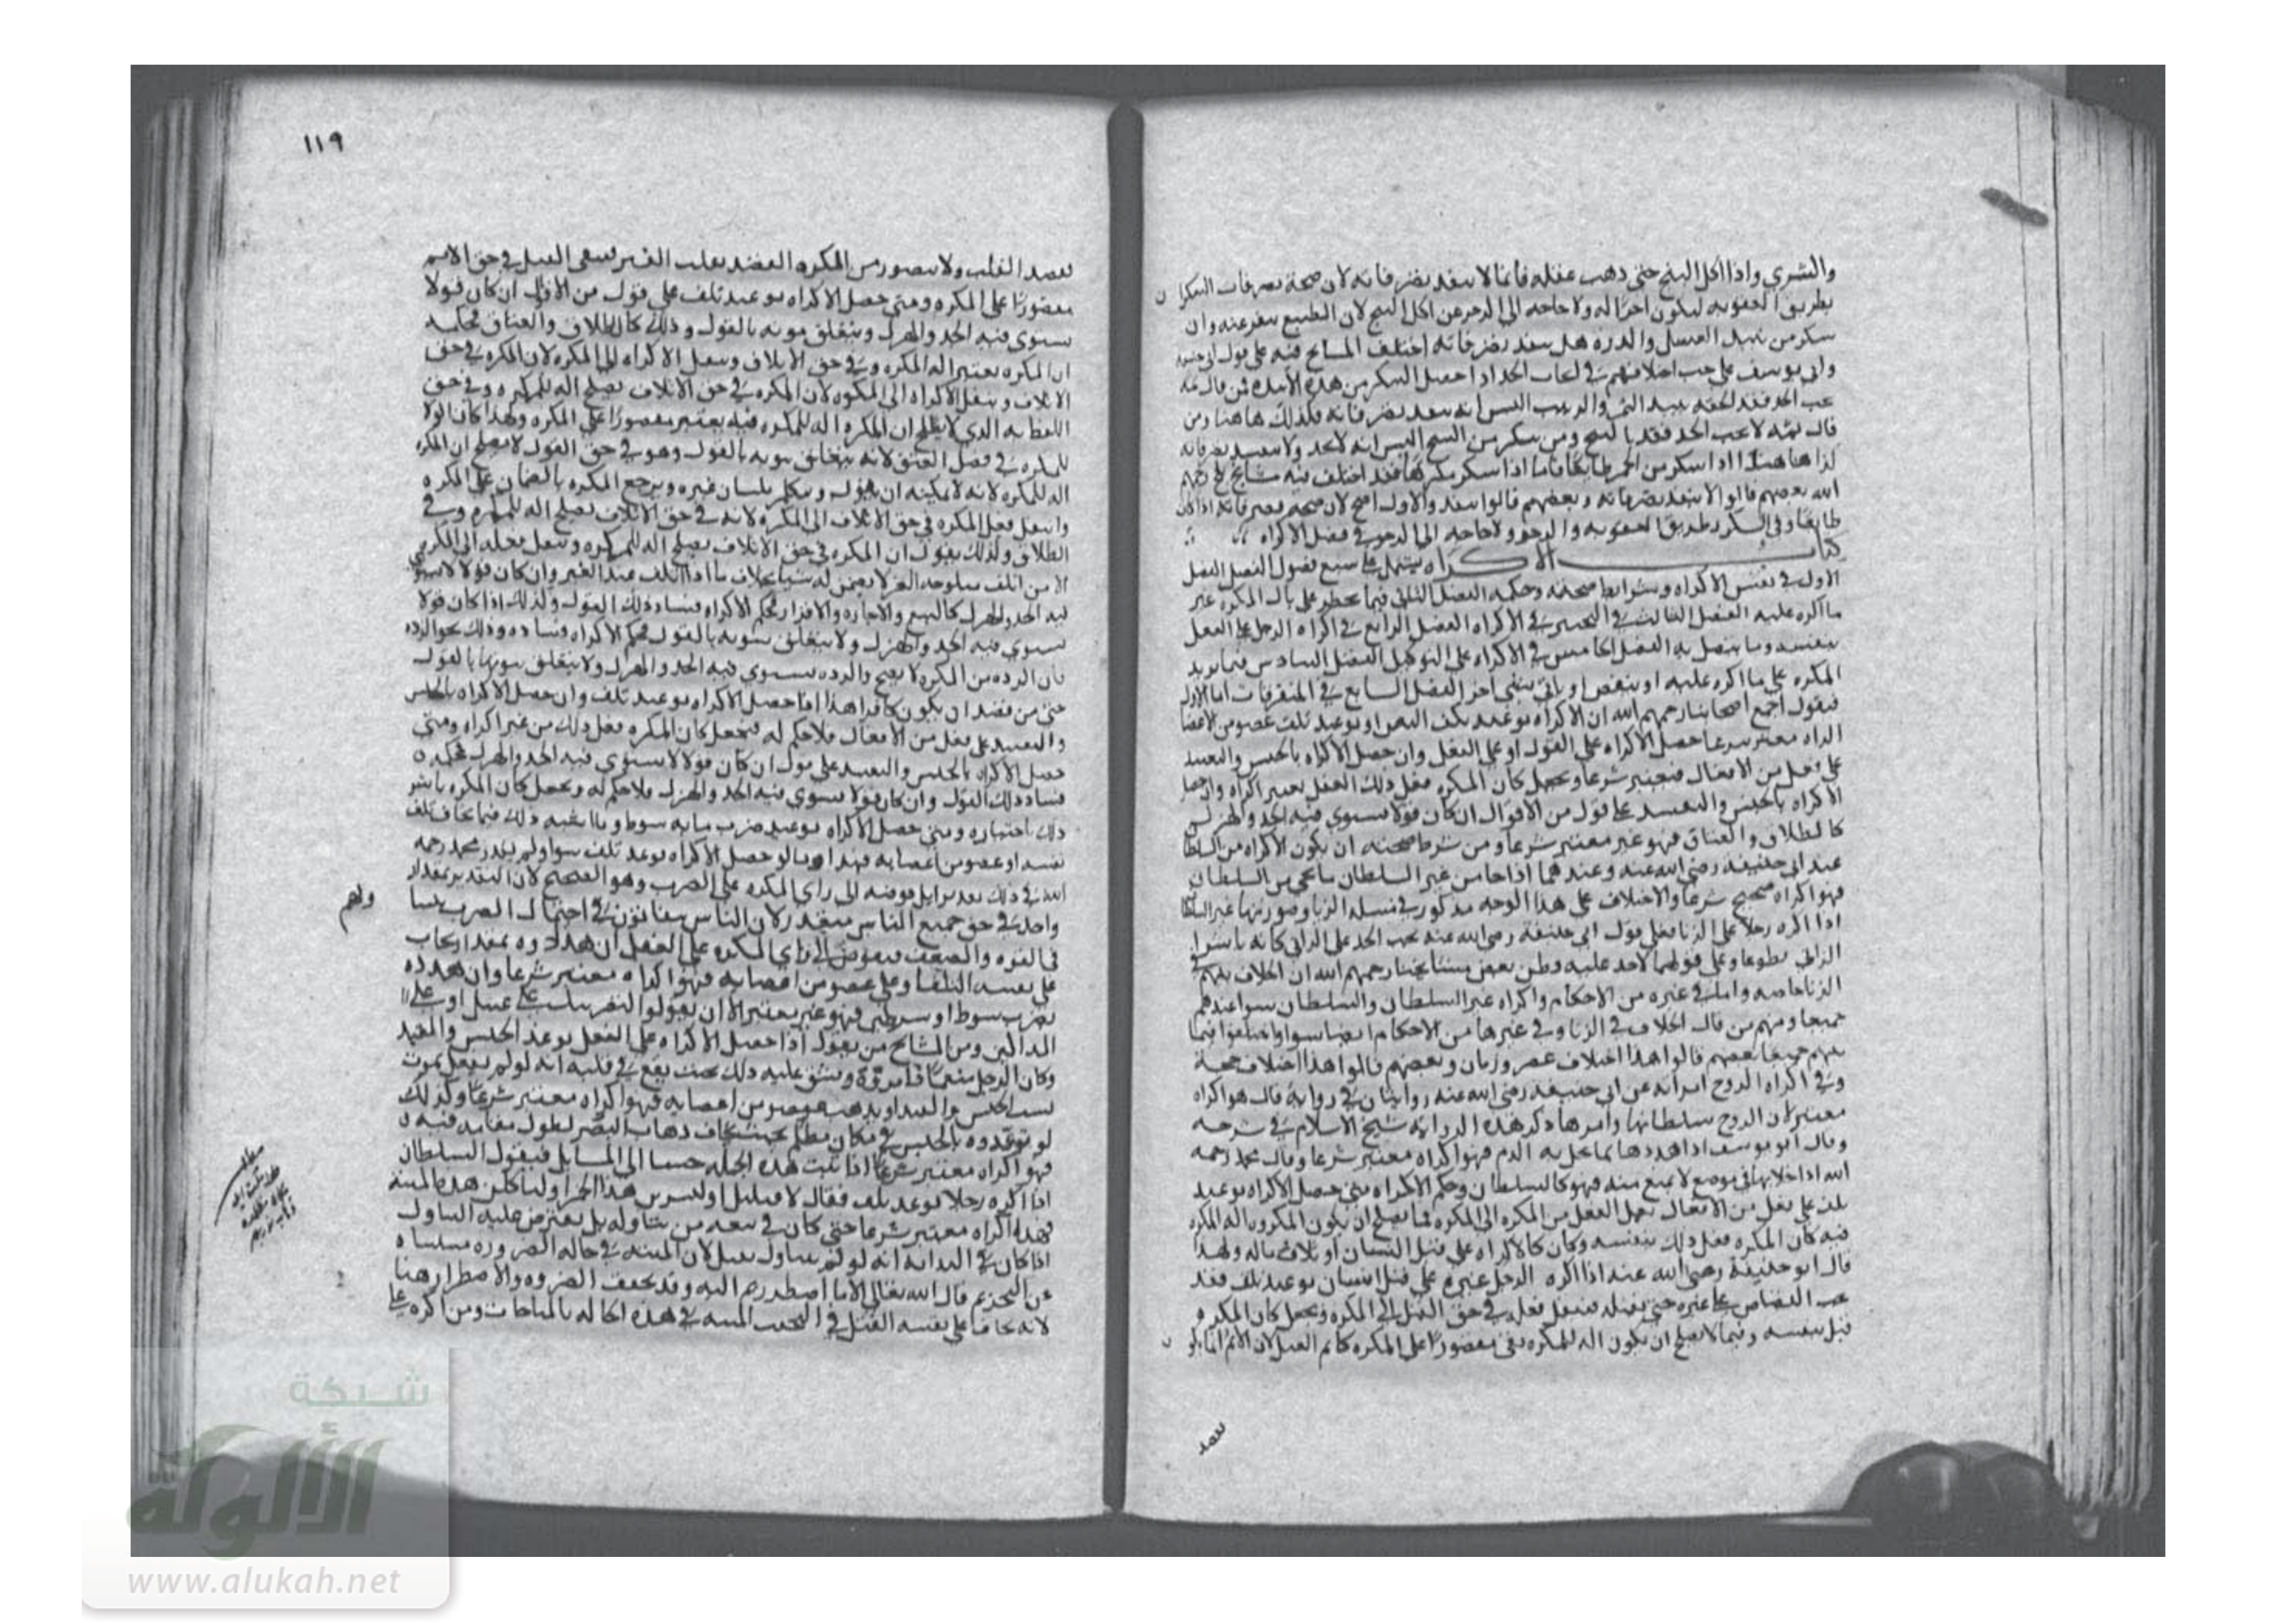 والشري واذا اكل البنج حتى ذهب عقله فانما لا ينفذ تصرفاته لان صحة تصرفات السكران
بطريق العقوبه ليكون زجرا له ولا حاجه الى الزجر عن اكل البنج لان الطبع ينفر عنه وان
سكر من نبيذ العسل والذره هل ينفذ تصرفاته اختلف المشايخ فيه على قول ابي حنيفه
وابي يوسف على حسب اختلافهم في ايجاب الحد اذا حصل السكر من هذه الاشربه فمن قال ثمه
يجب الحد فقد الحقه بنبيذ التمر والزبيب اليس انه ينفذ تصرفاته فكذلك هاهنا ومن
قال ثمه لا يجب الحد فقد بالبنج ومن سكر من البنج اليس انه لا يحد ولا ينفذ تصرفاته
كذا هاهنا هذا اذا سكر من الخمر طايعا فاما اذا سكر مكرها فقد اختلف فيه مشايخ رحمهم
الله بعضهم قالوا لا ينفذ تصرفاته وبعضهم قالوا ينفذ والاول اصح لان صحة تصرفاته اذا كان
طايعا في السكر بطريق العقوبه والزجر ولا حاجه الى الزجر في فصل الاكراه
كتاب الاكراه يشتمل على سبع فصول الفصل
الاول في نفس الاكراه وشرايط صحته وحكمه الفصل الثاني فيما يخطر على بال المكره غير
ما اكره عليه الفصل الثالث في التخيير في الاكراه الفصل الرابع في اكراه الرجل على الفعل
بنفسه وما يتصل به الفصل الخامس في الاكراه على التوكيل الفصل السادس فيما يزيد
المكره على ما اكره عليه او ينقص او ياتي بشي اخر الفصل السابع في المتفرقات اما الاول
فنقول اجمع اصحابنا رحمهم الله ان الاكراه بوعيد تلف النفس او بوعيد تلف عضو من الاعضا
اكراه معتبر شرعا حصل الاكراه على القول او على الفعل وان حصل الاكراه بالحبس والتقييد
على فعل من الافعال فيعتبر شرعا ويجعل كان المكره فعل ذلك الفعل بغير اكراه وان حصل
الاكراه بالحبس والتقييد على قول من الاقوال ان كان قولا يستوي فيه الجد والهزل
كالطلاق والعتاق فهو غير معتبر شرعا ومن شرط صحته ان يكون الاكراه من السلطان
عند ابي حنيفه رضي الله عنه وعندهما اذا جا من غير السلطان ما يجي من السلطان
فهو اكراه صحيح شرعا والاختلاف على هذا الوجه مذكور في مسله الزنا وصورتها غير السلطان
اذا اكره رجلا على الزنا فعلى قول ابي حنيفة رضي الله عنه يجب الحد على الزاني كانه باشر
الزنا تطوعا وعلى قولهما لا حد عليه وظن بعض مشايخنا رحمهم الله ان الخلاف بينهم في
الزنا خاصه واما في غيره من الاحكام واكراه غير السلطان والسلطان سوا عندهم
جميعا ومنهم من قال الخلاف في الزنا وفي غيرها من الاحكام ايضا سوا واختلفوا فيما
بينهم جميعا بعضهم قالوا هذا اختلاف عصر وزمان وبعضهم قالوا هذا اختلاف حجة
وفي اكراه الزوج امراته عن ابي حنيفه رضي الله عنه روايتان في رواية قال هو اكراه
معتبر لان الزوج سلطانها وامرها ذكر هذه الرواية شيخ الاسلام في شرحه
وقال ابو يوسف اذا هددها بما يحل به الدم فهو اكراه معتبر شرعا وقال محمد رحمه
الله اذا خلا بها في موضع لا يمنع منه فهو كالسلطان وحكم الاكراه متى حصل الاكراه بوعيد
تلف على فعل من الافعال نقل الفعل من المكره الى المكره فيما يصلح ان يكون المكره اله المكره
فيه كان المكره فعل ذلك بنفسه وكان كالاكراه على قتل انسان او اتلاف ماله ولهذا
قال ابو حنيفة رضي الله عنه اذا اكره الرجل غيره على قتل انسان بوعيد تلف فقد
يجب القصاص على غيره حتى يقتله فينقل فعله في حق القتل الى المكره ويجعل كان المكره
قتل بنفسه وفيما لا يصلح ان يكون اله للمكره بقى مقصورا على المكره كاثم القتل لان الاثم انما يكون
بقصد
١١٩
بقصد القلب ولا يتصور من المكره القصد بقلب الغير فبقي الفعل في حق الاثم
مقصورا على المكره ومتى حصل الاكراه بوعيد تلف على قول من الاقوال ان كان قولا
يستوي فيه الجد والهزل ويتعلق ثبوته بالقول وذلك كالطلاق والعتاق فحكمه
ان المكره يعتبر اله المكره في حق الاتلاف وينقل الاكراه الى المكره لان المكره في حق
الاتلاف وينقل الاكراه الى المكره لان المكره في حق الاتلاف يصلح اله للمكره وفي حق
اللفظ به الذي لا يصلح ان المكره اله للمكره فيه يعتبر مقصورا على المكره ولهذا كان الولا
للمكره في فصل العتق لانه يتعلق ثبوته بالقول وهو في حق القول لا يصلح ان المكره
اله للمكره لانه لا يمكنه ان يقول ويتكلم بلسان غيره ويرجع المكره بالضمان على المكره
وانتقل فعل المكره في حق الاتلاف الى المكره لانه في حق الاتلاف يصلح اله للمكره وفي
الطلاق وكذلك يقول ان المكره في حق الاتلاف يصلح اله للمكره وينقل فعله الى المكره
فيه الجد والهزل كالبيع والاجاره والاقرار فحكم الاكراه فساد ذلك القول وكذلك اذا كان قولا
يستوي فيه الجد والهزل ولا يتعلق ثبوته بالقول فحكم الاكراه فساده وذلك نحو الرده
فان الرده من المكره لا يصح والرده يستوي فيه الجد والهزل ولا يتعلق ثبوتها بالقول
حتى من قصد ان يكون كافرا هذا اذا حصل الاكراه بوعيد تلف وان حصل الاكراه بالحبس
والتقييد على فعل من الافعال فلا حكم له فيجعل كان المكره فعل ذلك من غير اكراه ومتى
حصل الاكراه بالحبس والتقييد على قول ان كان قولا لا يستوي فيه الجد والهزل فحكمه
فساد ذلك القول وان كان قولا يستوي فيه الجد والهزل فلا حكم له ويجعل كان المكره باشر
ذلك باختياره ومتى حصل الاكراه بوعيد ضرب مايه سوط وما اشبه ذلك فيما يخاف تلف
نفسه او عضو من اعضايه فهذا وما لو حصل الاكراه بوعد تلف سوا ولم يقدر محمد رحمه
الله في ذلك تقديرا بل فوضه الى راي المكره على الضرب وهو الصحيح لان التقدير بمقدار
واحد في حق جميع الناس متعذر لان الناس يتفاوتون في احتمال الضرب
في القوه والضعف فيفوض الى راي المكره على الفعل
على نفسه التلف او على عضو من اعضايه فهو اكراه معتبر شرعا وان هدده
بضرب سوط او سوطين فهو غير معتبر الا ان يقولوا لنضربنك على عينيك او على
المذاكير ومن المشايخ من يقول اذا حصل الاكراه على الفعل بوعد الحبس والقيد
وكان الرجل منعما ويشق عليه ذلك بحيث يقع في قلبه انه لو لم يفعل يموت
بسبب الحبس والقيد او يذهب عضو من اعضايه فهو اكراه معتبر شرعا وكذلك
لو توعدوه بالحبس في مكان مظلم بحيث يخاف ذهاب البصر لطول مقامه فيه
فهو اكراه معتبر شرعا اذا ثبت هذه الجمله جينا الى المسايل فنقول السلطان
اذا اكره رجلا بوعد تلف فقال لاقتلنك او لتشربن هذا الخمر او لتاكلن هذه الميتة
فهذا اكراه معتبر شرعا حتى كان في سعه من تناوله بل يفترض عليه التناول
اذا كان في انه لو لم يتناول يقتل لان الميته في حاله الضروره مستثناه
عن التحريم قال الله تعالى الا ما اضطررتم اليه وقد تحقق الضروره والاضطرار هنا
لانه يخاف على نفسه القتل في الميته في هذه الحاله بالمباحات ومن اكره على
شبكة
الألوكة
www.alukah.net